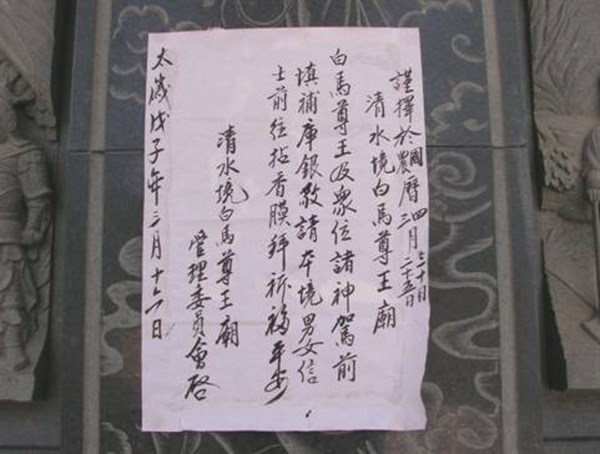 謹擇於國農曆四三月三十日二十五日
清水境白馬尊王廟
白馬尊王及衆位諸神駕前
填補庫銀敬請本境男女信
士前往拈香膜拜祈福平安
清水境白馬尊王廟
管理委員會啓
太歲戊子年三月十日